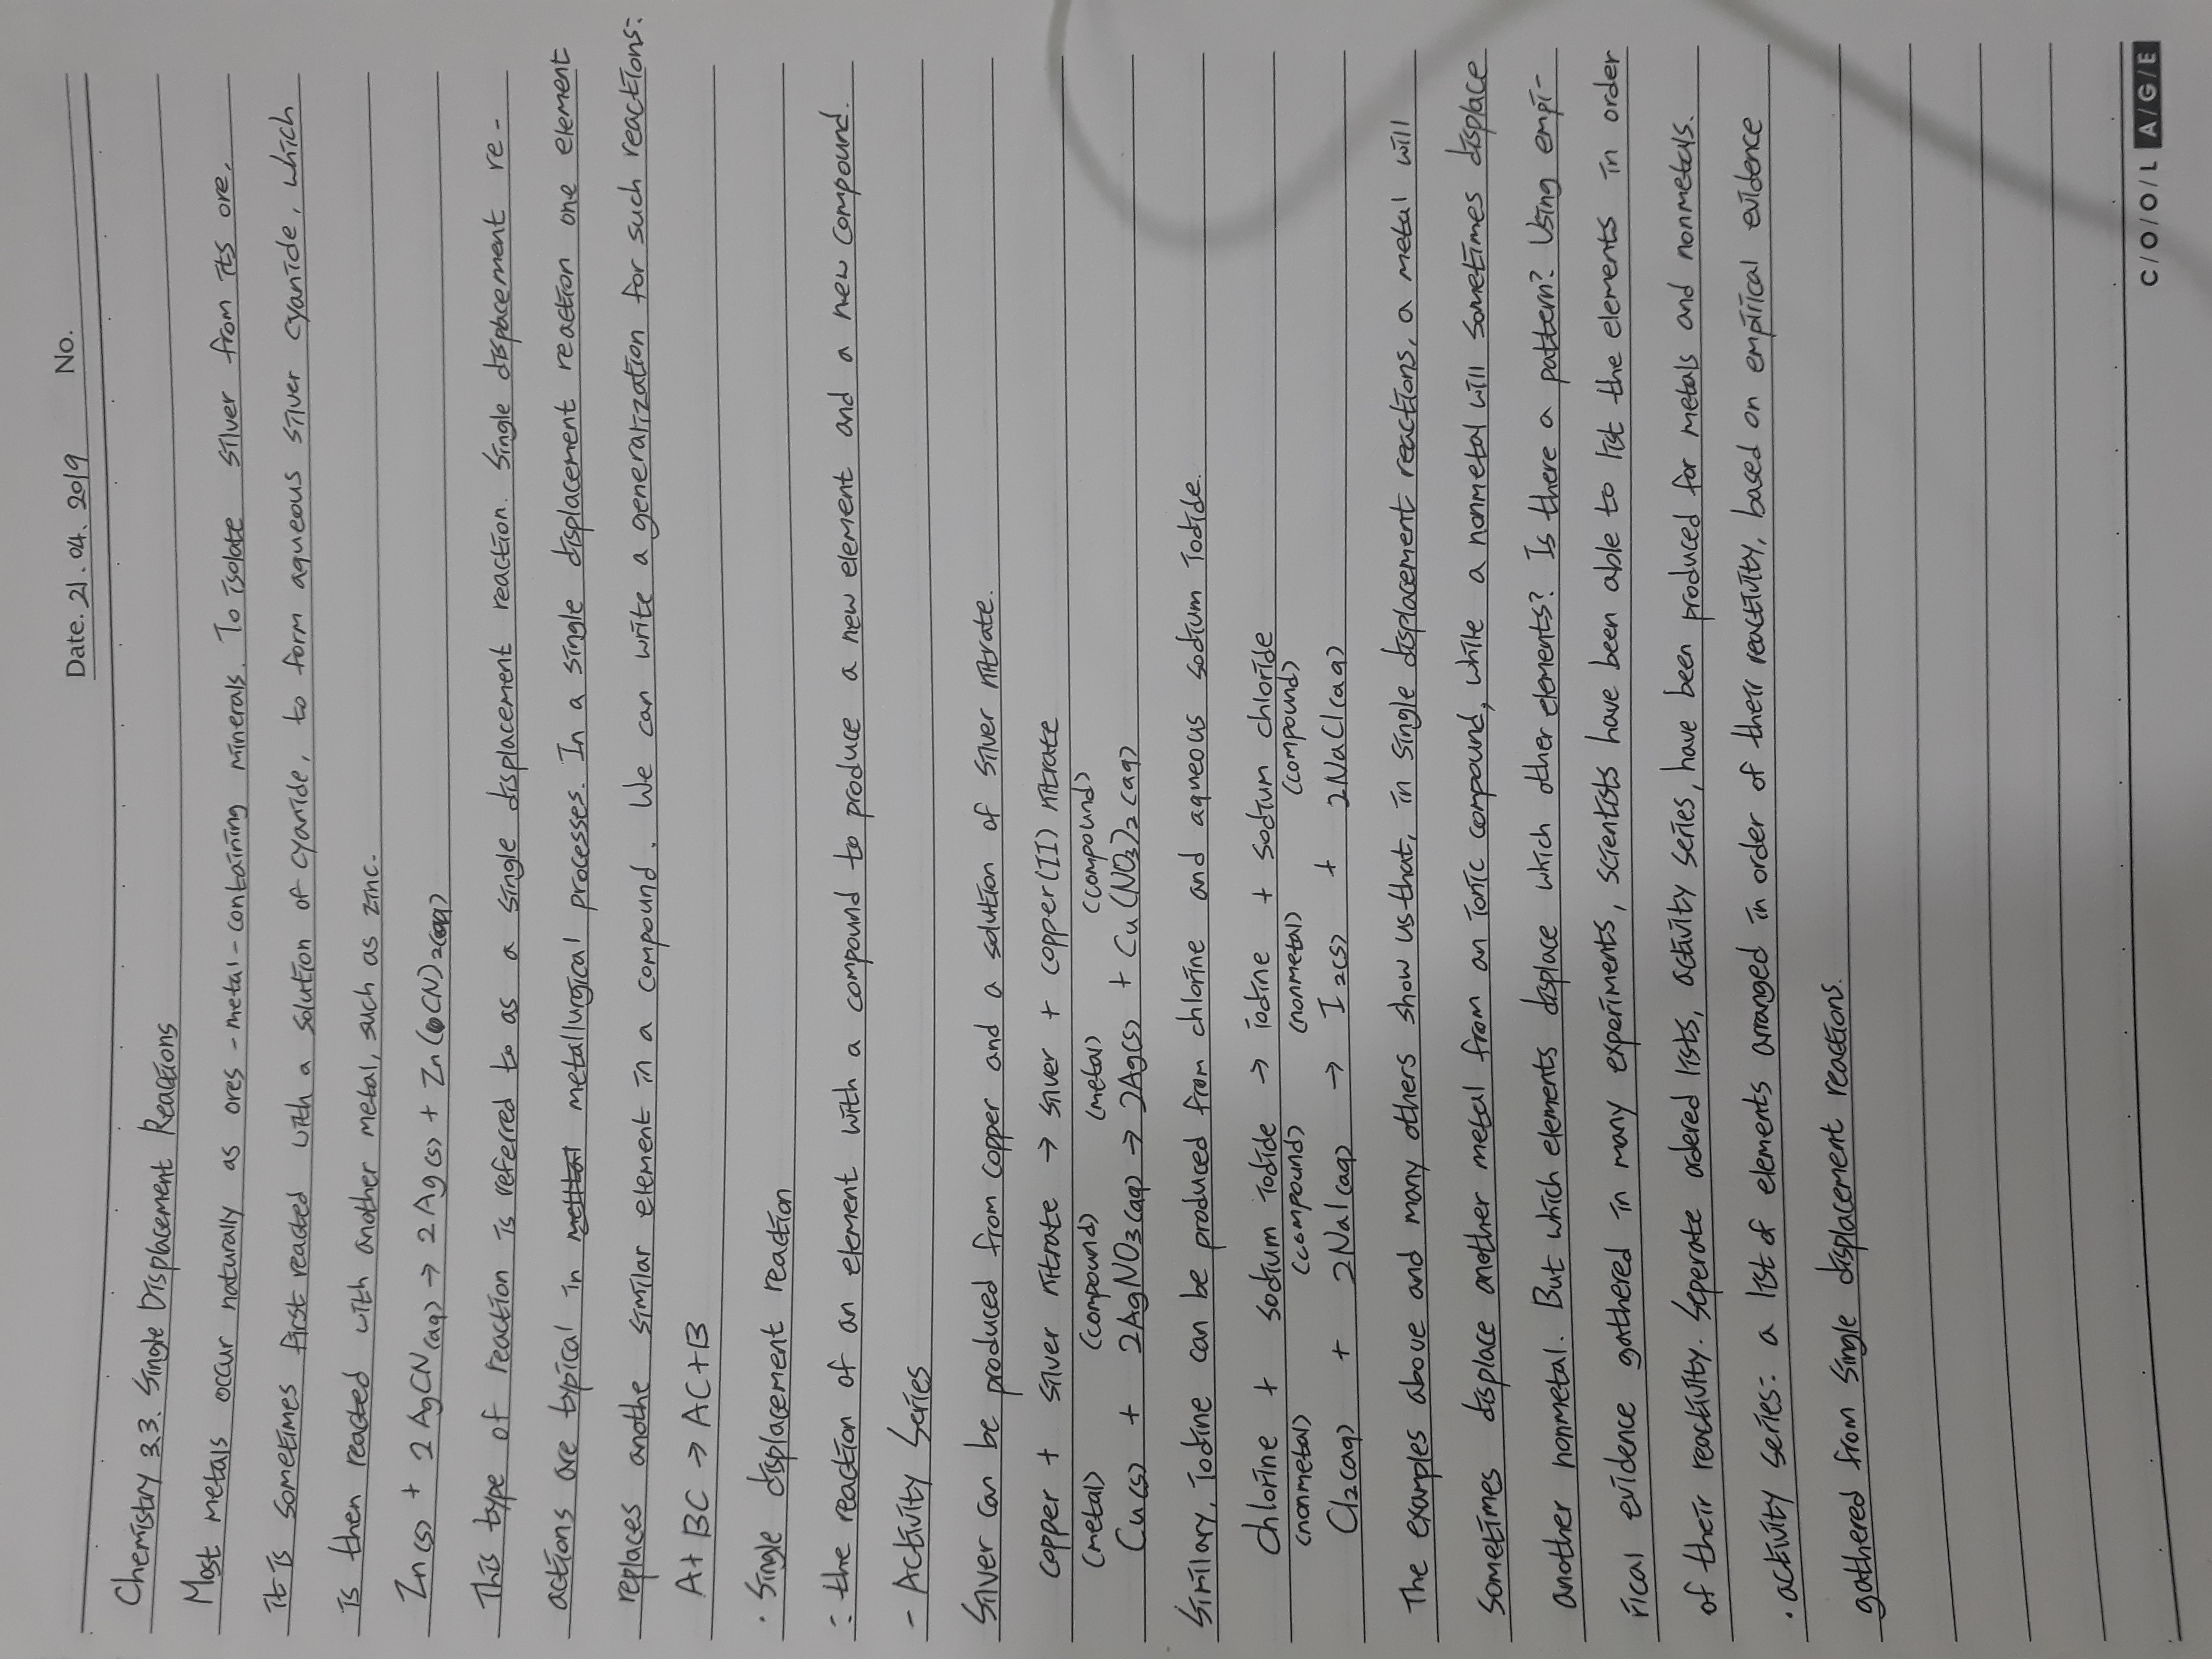 Date. 21. 04. 2019 No.
Chemistry 3.3. Single Displacement Reactions
Most metals occur naturally as ores - metal-containing minerals. To isolate silver from its ore,
it is sometimes first reacted with a solution of cyanide, to form aqueous silver cyanide, which
is then reacted with another metal, such as zinc.
Zn(s) + 2AgCN(aq) → 2Ag(s) + Zn(CN)2(aq)
This type of reaction is referred to as a single displacement reaction. Single displacement re-
actions are typical in metallurgical processes. In a single displacement reaction one element
replaces anothe similar element in a compound. We can write a generalization for such reactions:
A+BC → AC+B
· Single displacement reaction
: the reaction of an element with a compound to produce a new element and a new compound.
- Activity Series
Silver can be produced from copper and a solution of silver nitrate.
copper + silver nitrate → silver + copper(II) nitrate
(metal) (compound) (metal) (compound)
Cu(s) + 2AgNO3(aq) → 2Ag(s) + Cu(NO3)2(aq)
Similary, iodine can be produced from chlorine and aqueous sodium iodide.
Chlorine + sodium iodide → iodine + sodium chloride
(nonmetal) (compound) (nonmetal) (compound)
Cl2(aq) + 2NaI(aq) → I2(s) + 2NaCl(aq)
The examples above and many others show us that, in single displacement reactions, a metal will
sometimes displace another metal from an ionic compound, while a nonmetal will sometimes displace
another nonmetal. But which elements displace which other elements? Is there a pattern? Using empi-
rical evidence gathered in many experiments, scientists have been able to list the elements in order
of their reactivity. Seperate ordered lists, activity series, have been produced for metals and nonmetals.
· activity series: a list of elements arranged in order of their reactivity, based on empirical evidence
gathered from single displacement reactions.
C/O/O/L A/G/E